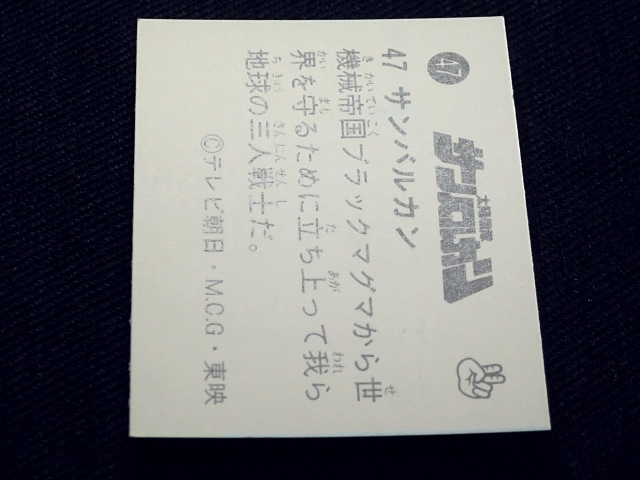 47
太陽戦隊
サンバルカン
47 サンバルカン
機械帝国ブラックマグマから世
界を守るために立ち上って我ら
地球の三人戦士だ。
©テレビ朝日・M.C.G・東映